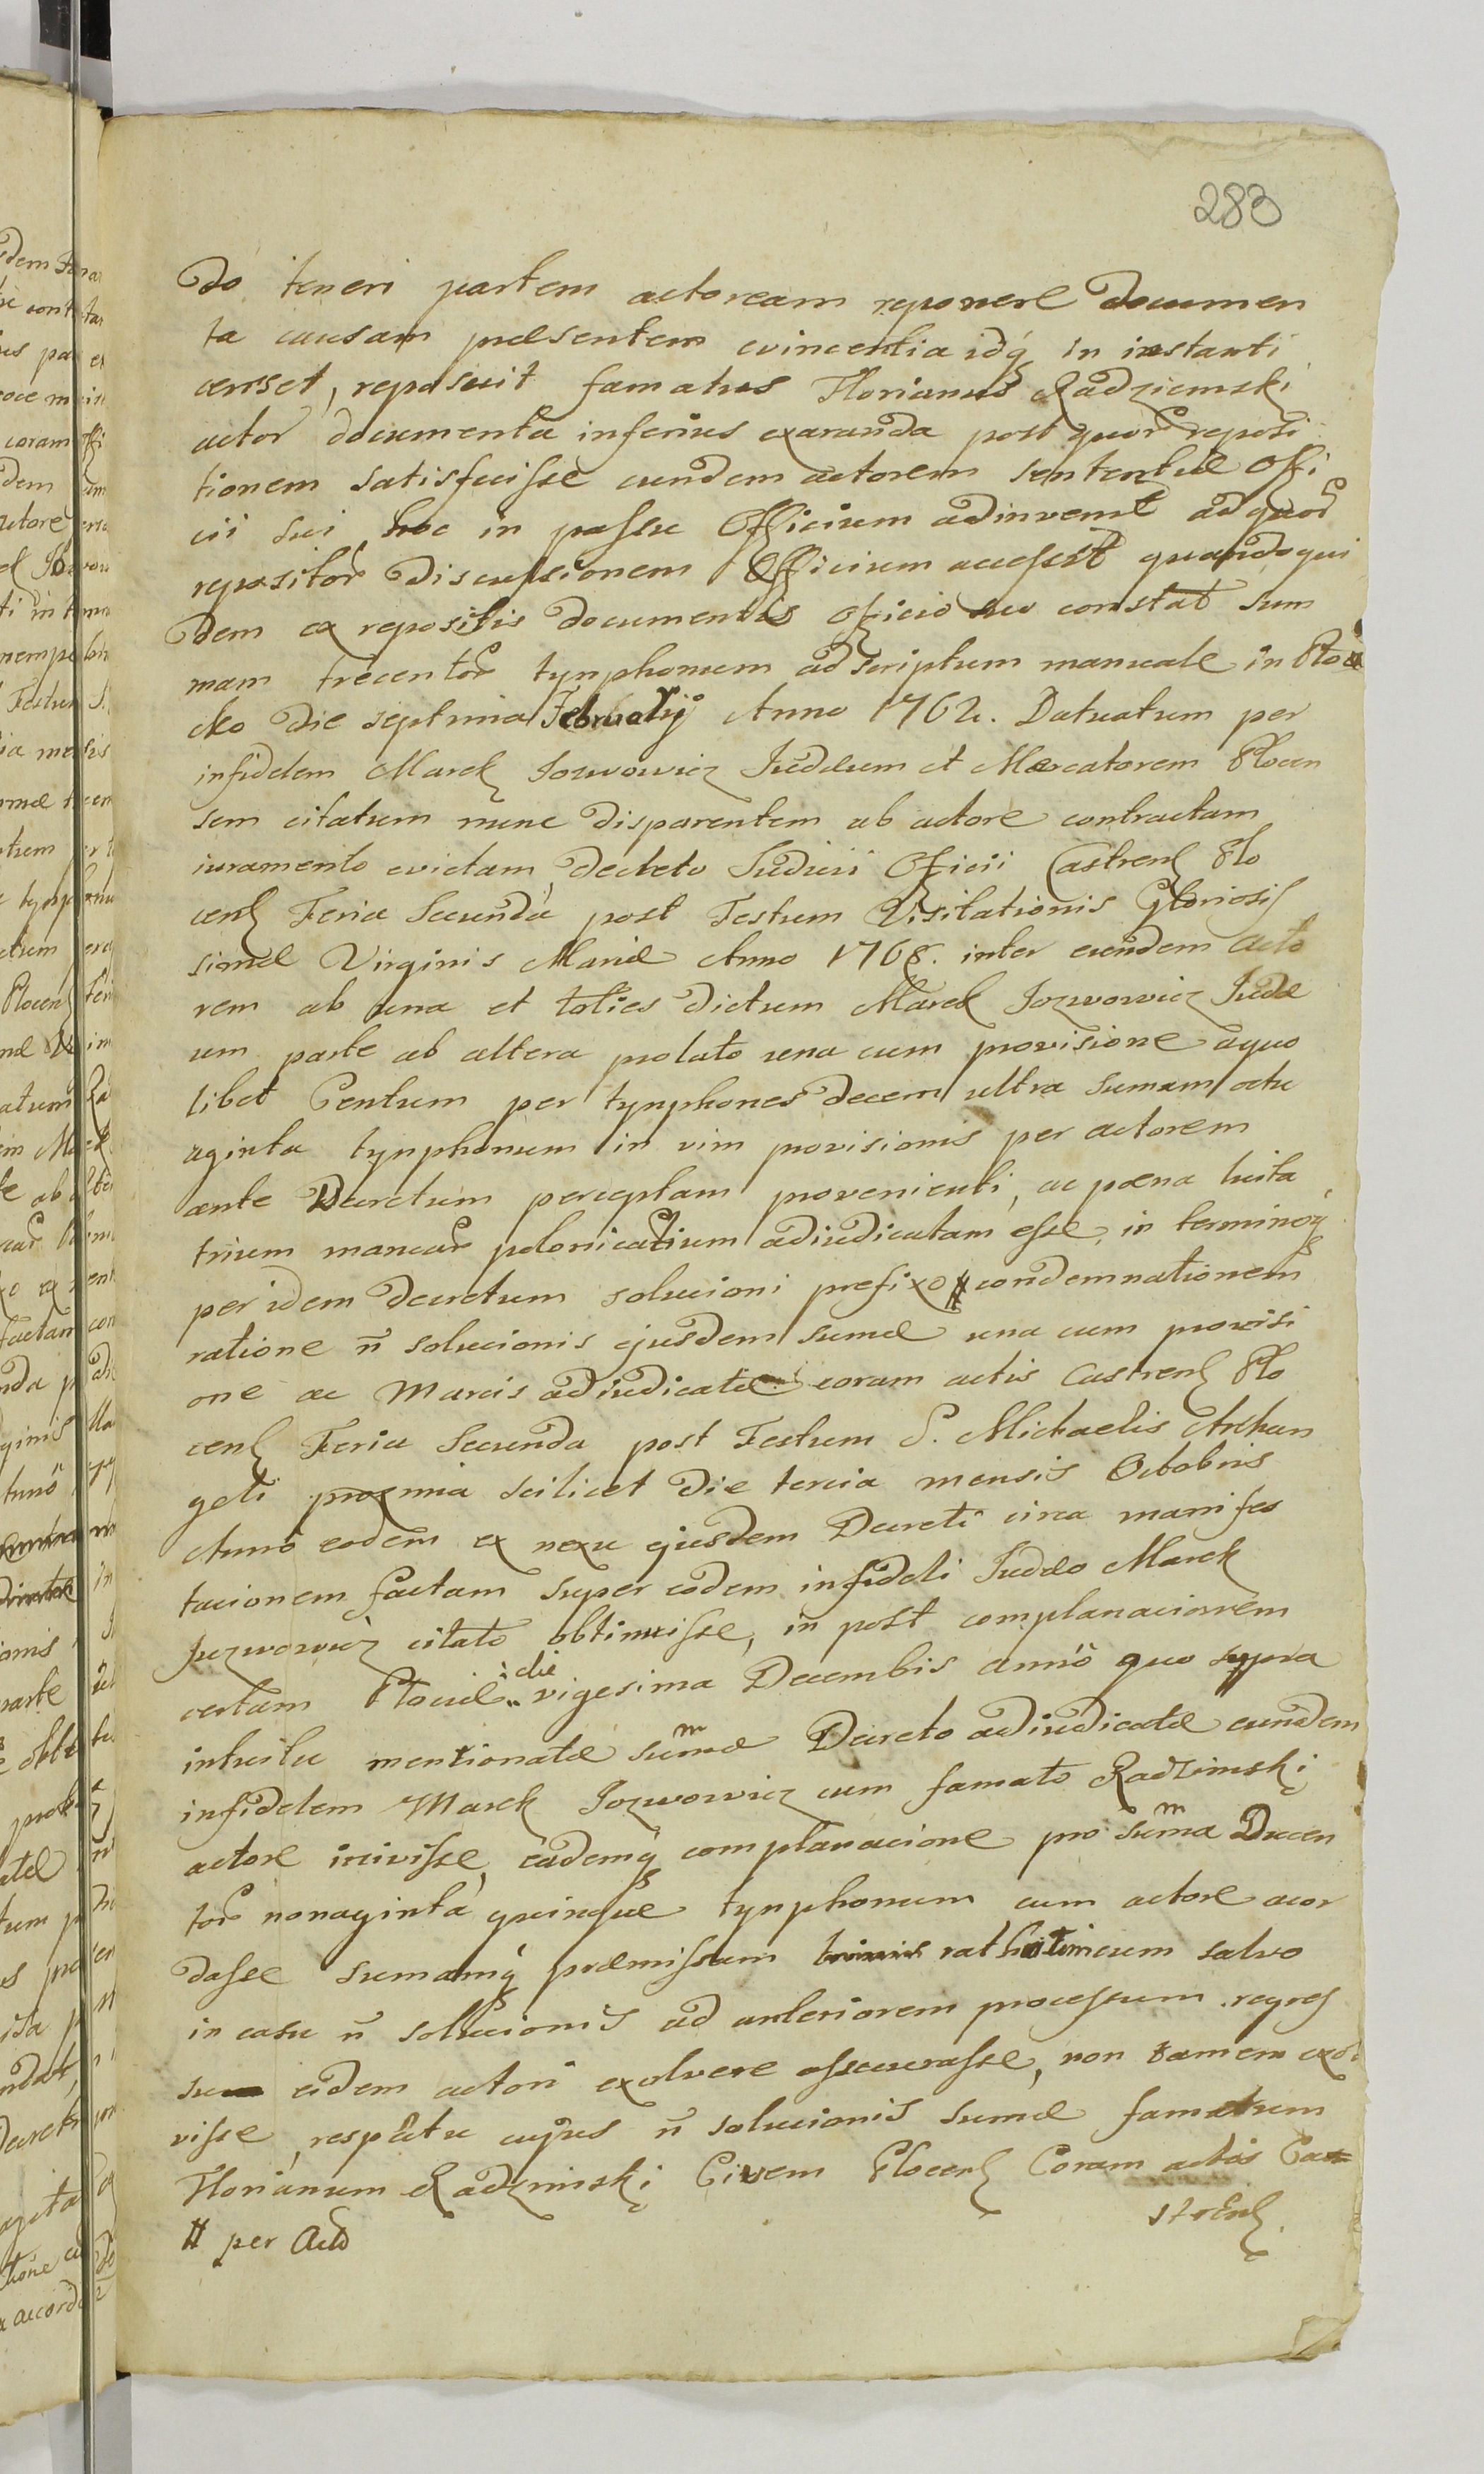 283
do teneri partem actoream reponere documen
ta causam præsentem evincentia idq́ in instanti
censet, reposuit famatus Florianus Radziemski
actor documenta inferius exaranda post quor reposi
tionem satisfecisse eundem actorem sententiæ Offi
cii sui hoc in passu Officium adinvenit ad quor
repositor discussionem Officium accessit quandoqui
dem ex repositis documentis officio suo constat sum
mam trecentor tynphonum ad scriptum manuale in Plo
cko die septima Februarij Anno 1762. Datuatum per
infidelem Marek Jozwowicz Judæum et Mercatorem Plocen
sem citatum nunc disparentem ab actore contractam
iuramento evictam, decreto Judicii Officii Castrens Plo
cens Feria Secunda post Festum Visitationis Gloriosis
simæ Virginis Mariæ Anno 1768. inter eundem acto
rem ab una et toties dictum Marek Jozwowicz Judæ
um parte ab altera prolato una cum provisione a quo
libet Centum per tynphones decem ultra sumam octu
aginta tynphonum in vim provisionis per actorem
ante Decretum perceptam provenienti, ac pæna luita
trium marcar polonicalium adiudicatam esse, in terminoq́
per idem decretum solucioni prefixo # condemnationem
ratione ñ solucionis ejusdem sumæ una cum provisi
one ac Marcis adiudicatæ coram actis Castrens Plo
cens Feria Secunda post Festum S. Michaelis Archan
geli proxima scilicet die tercia mensis Octobris
Anno eodem ex nexu ejusdem Decreti circa manifes
tacionem factam super eodem infideli Judæo Marek
Juzwowicz citato obtinuisse, in post complanacionem
certam Plociæ die vigesima Decembris anno quo supra
intuitu mentionatæ summæ Decreto adiudicatæ eundem
infidelem Marek Jozwowicz cum famato Radzimski
actore inivisse, eademq́ complanacione pro summa Ducen
tor nonaginta quinque tynphonum cum actore acor
dasse sumamq́ præmissam trinis rathis timeum salvo
in casu ñ solucionis ad anteriorem processum regres
su eidem actori exolvere assecurasse, non tamem exol
visse, respectu cujus ñ solucionis sumæ famatum
Florianum Radzimski Civem Plocens Coram actis Ca
strens
# per Acto